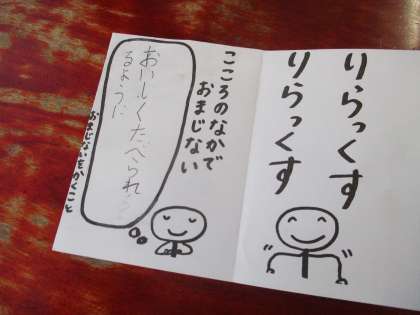 りらっくす
りらっくす
こころのなかで
おまじない
おいしくたべられ
るように
おまじないをかくこと